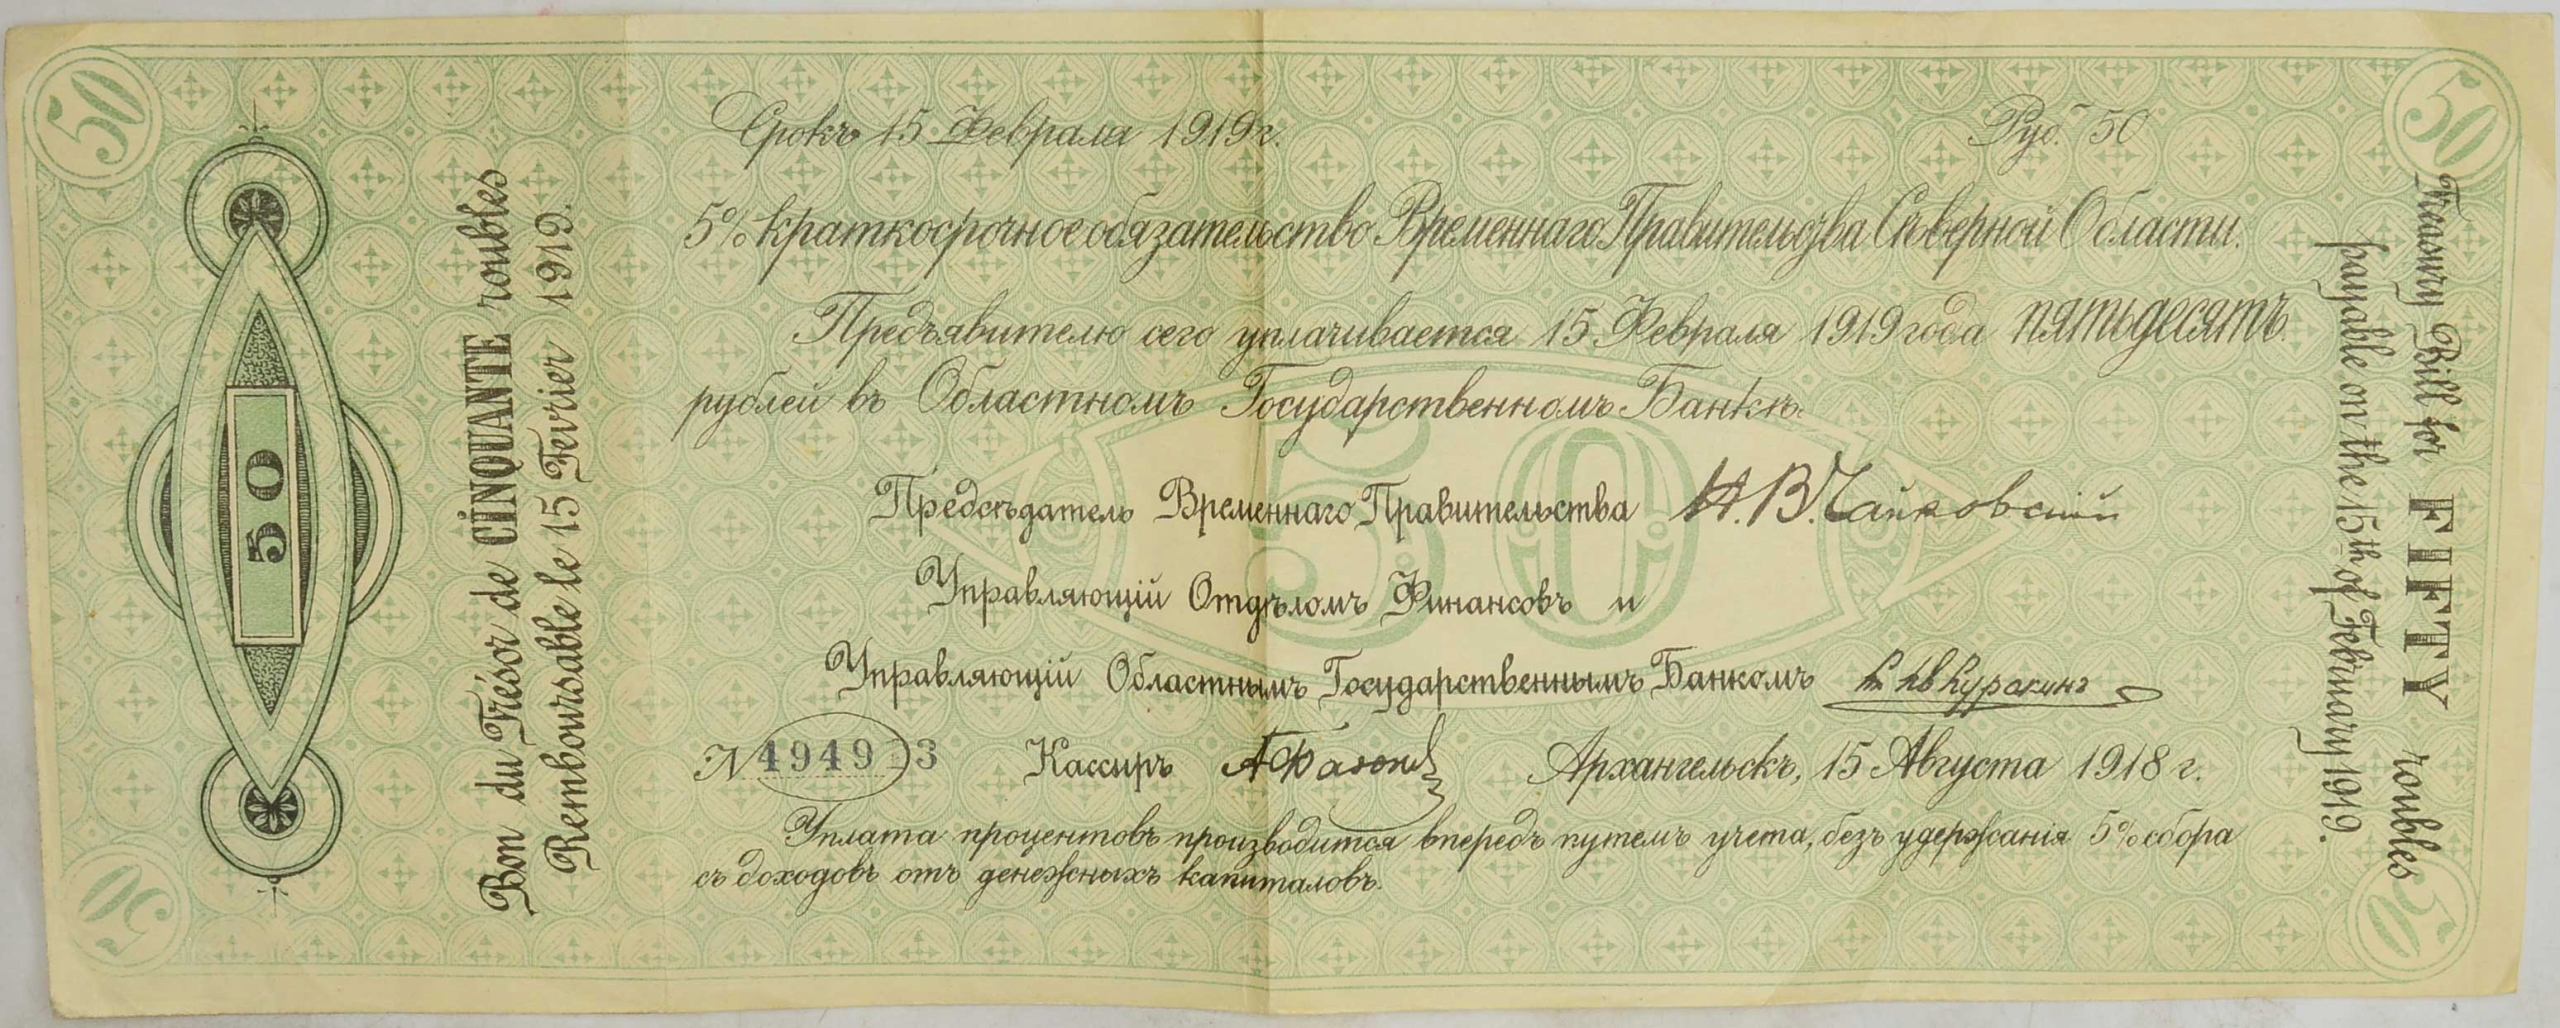 50
50
Срокъ 15 Февраля 1919 г.
Руб. 50
5% краткосрочное обязательство Временнаго Правительства Сѣверной Области.
Предъявителю сего уплачивается 15 Февраля 1919 года пятьдесятъ
рублей въ Областномъ Государственномъ Банкѣ.
50
Предсѣдатель Временнаго Правительства Н. В. Чайковскій
Управляющій Отдѣломъ Финансовъ и
Управляющій Областнымъ Государственнымъ Банкомъ
N 4949 3 Кассиръ Архангельскъ, 15 Августа 1918 г.
Уплата процентовъ производится впередъ путемъ учета, безъ удержанія 5% сбора
съ доходовъ отъ денежныхъ капиталовъ.
50
Bon du Trésor de CINQUANTE roubles
Remboursable le 15 Fevrier 1919.
Treasury Bill for FIFTY roubles
payable on the 15th of February 1919.
50
50